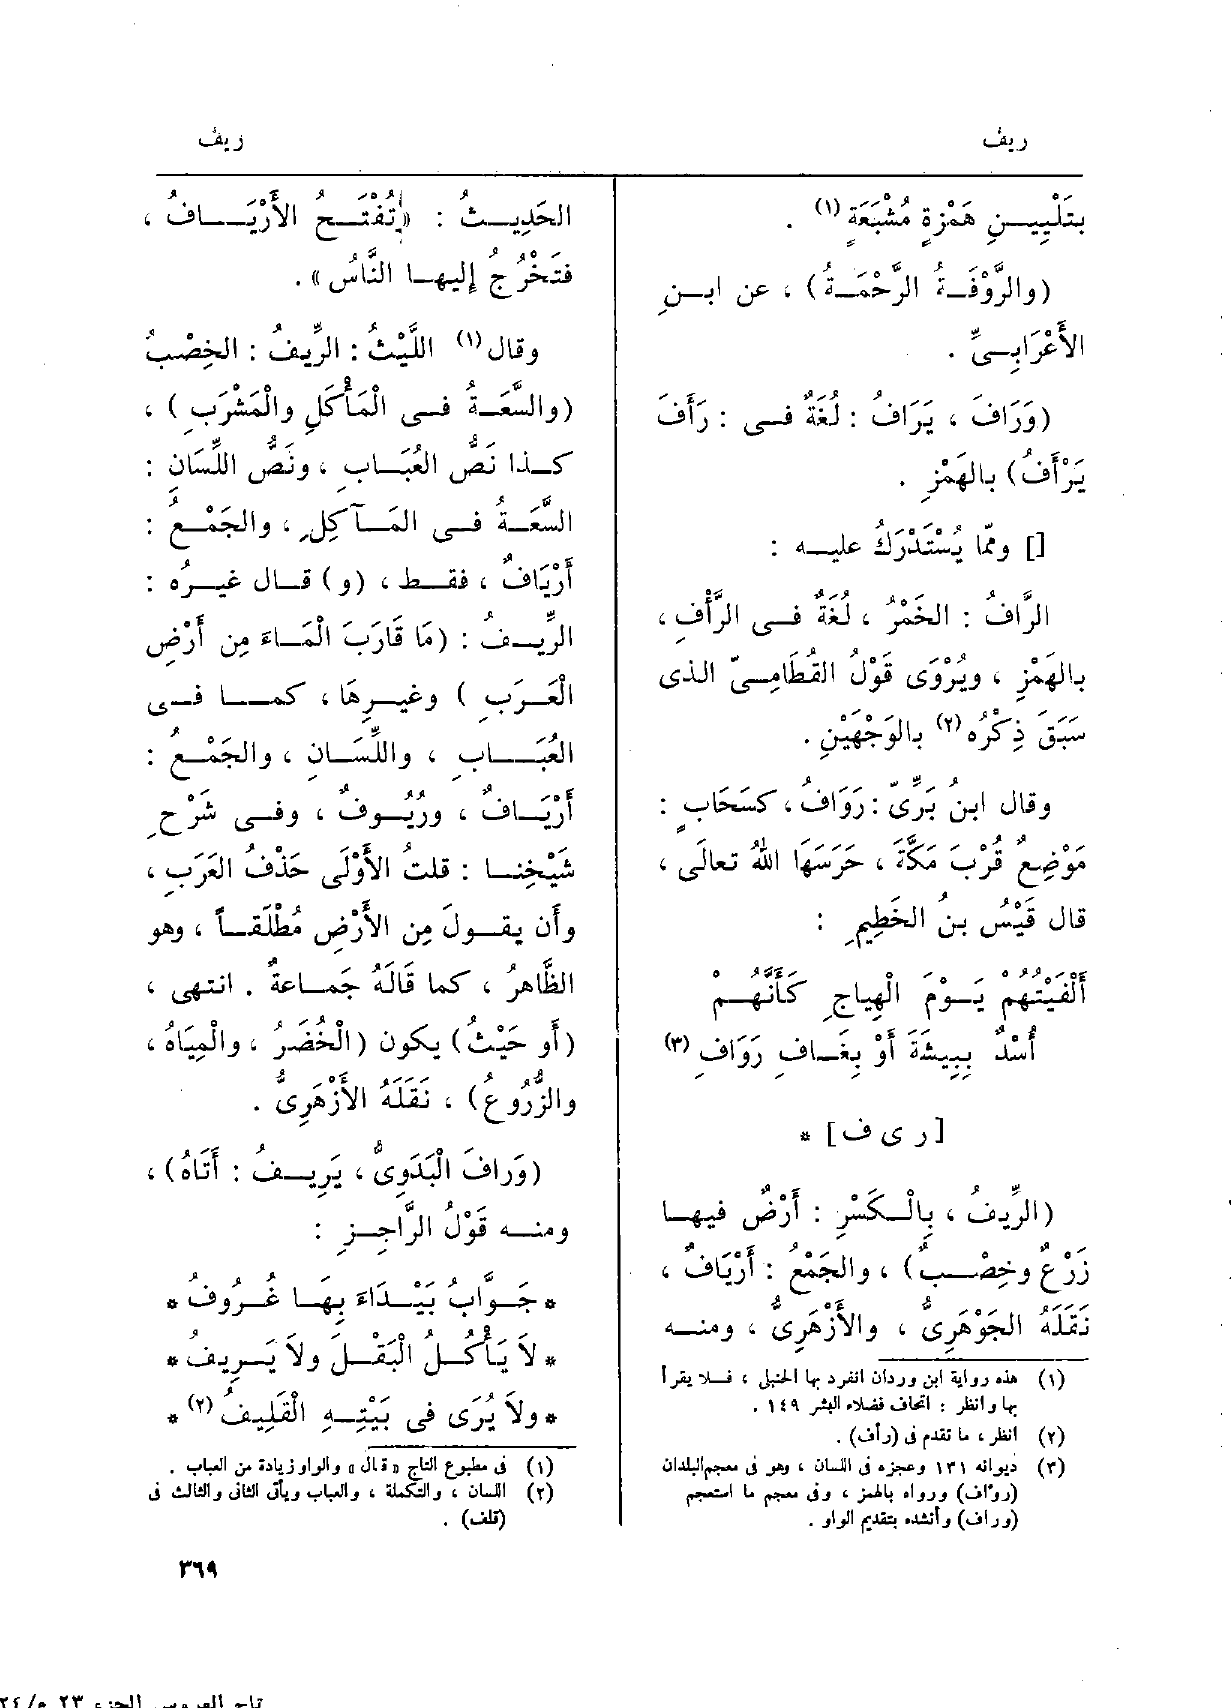 ريف
ريف
بتَلْيِيـــنِ هَمْزةٍ مُشْبَعَةٍ (١) .
(والرَّوْفَــةُ الرَّحْمَــةُ) ، عن ابــنِ
الأَعْرَابِــىِّ .
(وَرَافَ ، يَرَافُ : لُغَةٌ فــى : رَأَفَ
يَرْأَفُ) بالهَمْزِ .
[] وممّا يُسْتَدْرَكُ عليــه :
الرَّافُ : الخَمْرُ ، لُغَةٌ فــى الرَّأْفِ ،
بالهَمْزِ ، ويُرْوَى قَوْلُ القُطَامِــىّ الذى
سَبَقَ ذِكْرُه (٢) بالوَجْهَيْنِ .
وقال ابنُ بَرِّىّ : رَوَافُ ، كسَحَابٍ :
مَوْضِعٌ قُرْبَ مَكَّةَ ، حَرَسَهَا اللهُ تعالَى ،
قال قَيْسُ بنُ الخَطِيمِ :
أَلْفَيْتُهُمْ يَــوْمَ الْهِياجِ كَأَنَّهُــمْ
أُسْدٌ بِبِيشَةَ أَوْ بِغَــافِ رَوَافِ (٣)
[ ر ى ف ] *
(الرِّيفُ ، بِالْــكَسْرِ : أَرْضٌ فيهــا
زَرْعٌ وخِصْــبٌ) ، والجَمْعُ : أَرْيَافٌ ،
نَقَلَهُ الجَوْهَرِىُّ ، والأَزْهَرِىُّ ، ومنــه
(١) هذه رواية ابن وردان انفرد بها الحنبلى ، فــلا يقرأ
بها وانظر : اتحاف فضلاء البشر ١٤٩ .
(٢) انظر ، ما تقدم فى (رأف) .
(٣) ديوانه ١٣١ وعجزه فى اللسان ، وهو فى معجم البلدان
(رؤاف) ورواه بالهمز ، وفى معجم ما استعجم
(وراف) وأنشده بتقديم الواو .
الحَدِيــثُ : «تُفْتَــحُ الأَرْيَـــافُ ،
فتَخْرُجُ إِليهــا النَّاسُ» .
وقال (١) اللَّيْثُ : الرِّيفُ : الخِصْبُ
(والسَّعَــةُ فــى الْمَأْكَلِ والْمَشْرَبِ ) ،
كــذا نَصُّ العُبَــابِ ، ونَصُّ اللِّسَانِ :
السَّعَــةُ فــى المَــآكِلِ ، والجَمْــعُ :
أَرْيَافٌ ، فقــط ، (و) قــال غيــرُه :
الرِّيــفُ : (مَا قَارَبَ الْمَــاءَ مِن أَرْضِ
الْعَــرَبِ ) وغيــرِهَا ، كمــا فــى
العُبَـــابِ ، واللِّسَــانِ ، والجَمْــعُ :
أَرْيَــافٌ ، ورُيُــوفٌ ، وفــى شَرْحِ
شَيْخِنــا : قلتُ الأَوْلَى حَذْفُ العَرَبِ ،
وأَن يقــولَ مِن الأَرْضِ مُطْلَقــاً ، وهو
الظَّاهرُ ، كما قَالَهُ جَمــاعةٌ . انتهى ،
(أَو حَيْثُ) يكون (الْخُضَرُ ، والْمِيَاهُ ،
والزُّرُوعُ) ، نَقَلَهُ الأَزْهَرِىُّ .
(وَرافَ الْبَدَوِىُّ ، يَرِيــفُ : أَتَاهُ) ،
ومنــه قَوْلُ الرَّاجِــزِ :
* جَــوَّابُ بَيْــدَاءَ بِهَــا غُــرُوفُ *
* لاَ يَأْكُــلُ الْبَقْــلَ ولاَ يَــرِيفُ *
* ولاَ يُرَى فِى بَيْتِــهِ الْقَلِيفُ (٢) *
(١) فى مطبوع التاج «قال» والواو زيادة من العباب .
(٢) اللسان ، والتكملة ، والعباب ويأتى الثانى والثالث فى
(قلف) .
٣٦٩
تاج العروس الجزء ٢٣ م/٢٤